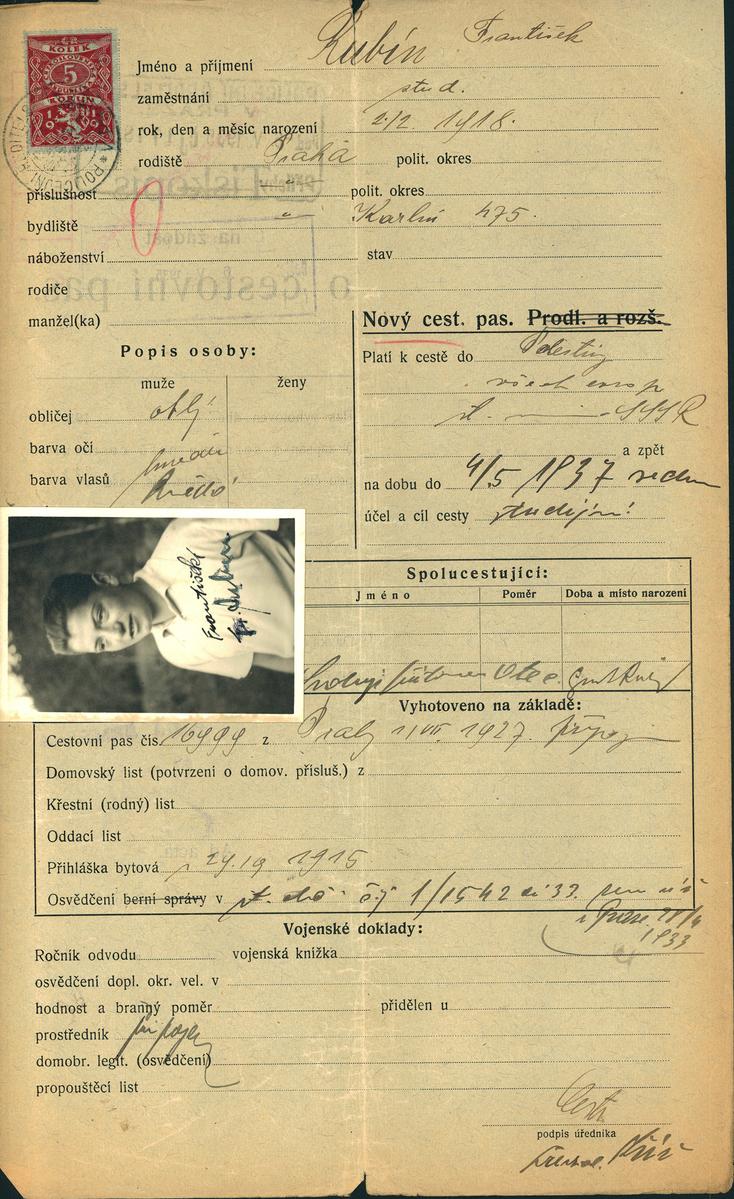 KOLEK
5
KORUN
Rubín František
Jméno a příjmení
zaměstnání stud.
rok, den a měsíc narození 2/2. 1918.
rodiště Praha polit. okres
příslušnost " polit. okres
bydliště " Karlín 475.
náboženství stav
rodiče
manžel(ka)
Nový cest. pas. Prodl. a rozš.
Popis osoby:
muže ženy
obličej obl.
barva očí hnědé
barva vlasů hnědé
Platí k cestě do Palestiny
všech evrop
st. SSSR
a zpět
na dobu do 4/5 1937
účel a cíl cesty studijní
František
Spolucestující:
Jméno Poměr Doba a místo narození
otec
Vyhotoveno na základě:
Cestovní pas čís. 16999 z Prahy 1927.
Domovský list (potvrzení o domov. přísluš.) z
Křestní (rodný) list
Oddací list
Přihláška bytová
Osvědčení berní správy v čj 1/1542
1933
Vojenské doklady:
Ročník odvodu vojenská knížka
osvědčení dopl. okr. vel. v
hodnost a branný poměr přidělen u
prostředník
domobr. legit. (osvědčení)
propouštěcí list
podpis úředníka